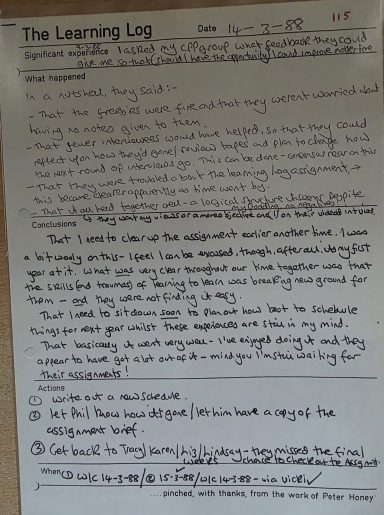 115
The Learning Log Date 14-3-88
9-3-88
Significant experience I asked my CPP group what feedback they could
give me so that should I have the opportunity I could improve another time.
What happened
In a nutshell, they said:-
- That the freebies were fine and that they weren't worried about
having no notes given to them.
- That fewer interviewees would have helped, so that they could
reflect upon how they'd gone/review tapes and plan to change how
the next round of interviews go. This can be done - consensus near on this
- That they were troubled about the learning log assignment, →
this became clearer apparently as time went by.
- That it all held together well - a logical structure despite
my
↳ they want my views or a more objective one on their videoed interviews.
Conclusions
That I need to clear up the assignment earlier another time. I was
a bit woolly on this - I feel I can be excused, though, after all, it's my first
year at it. What was very clear throughout our time together was that
the skills (and traumas) of learning to learn was breaking new ground for
them - and they were not finding it easy.
That I need to sit down soon to plan out how best to schedule
things for next year whilst these experiences are still in my mind.
That basically it went very well - I've enjoyed doing it and they
appear to have got a lot out of it - mind you I'm still waiting for
their assignments!
Actions
① Write out a new schedule.
② Let Phil know how it's gone/let him have a copy of the
assignment brief.
③ Get back to Tracy/Karen/Liz/Lindsay - they missed the final
weeks chance to check out the Assgmt.
When ① W/C 14-3-88/② 15-3-88/W/C 14-3-88 - via Vicki ✓
....pinched, with thanks, from the work of Peter Honey